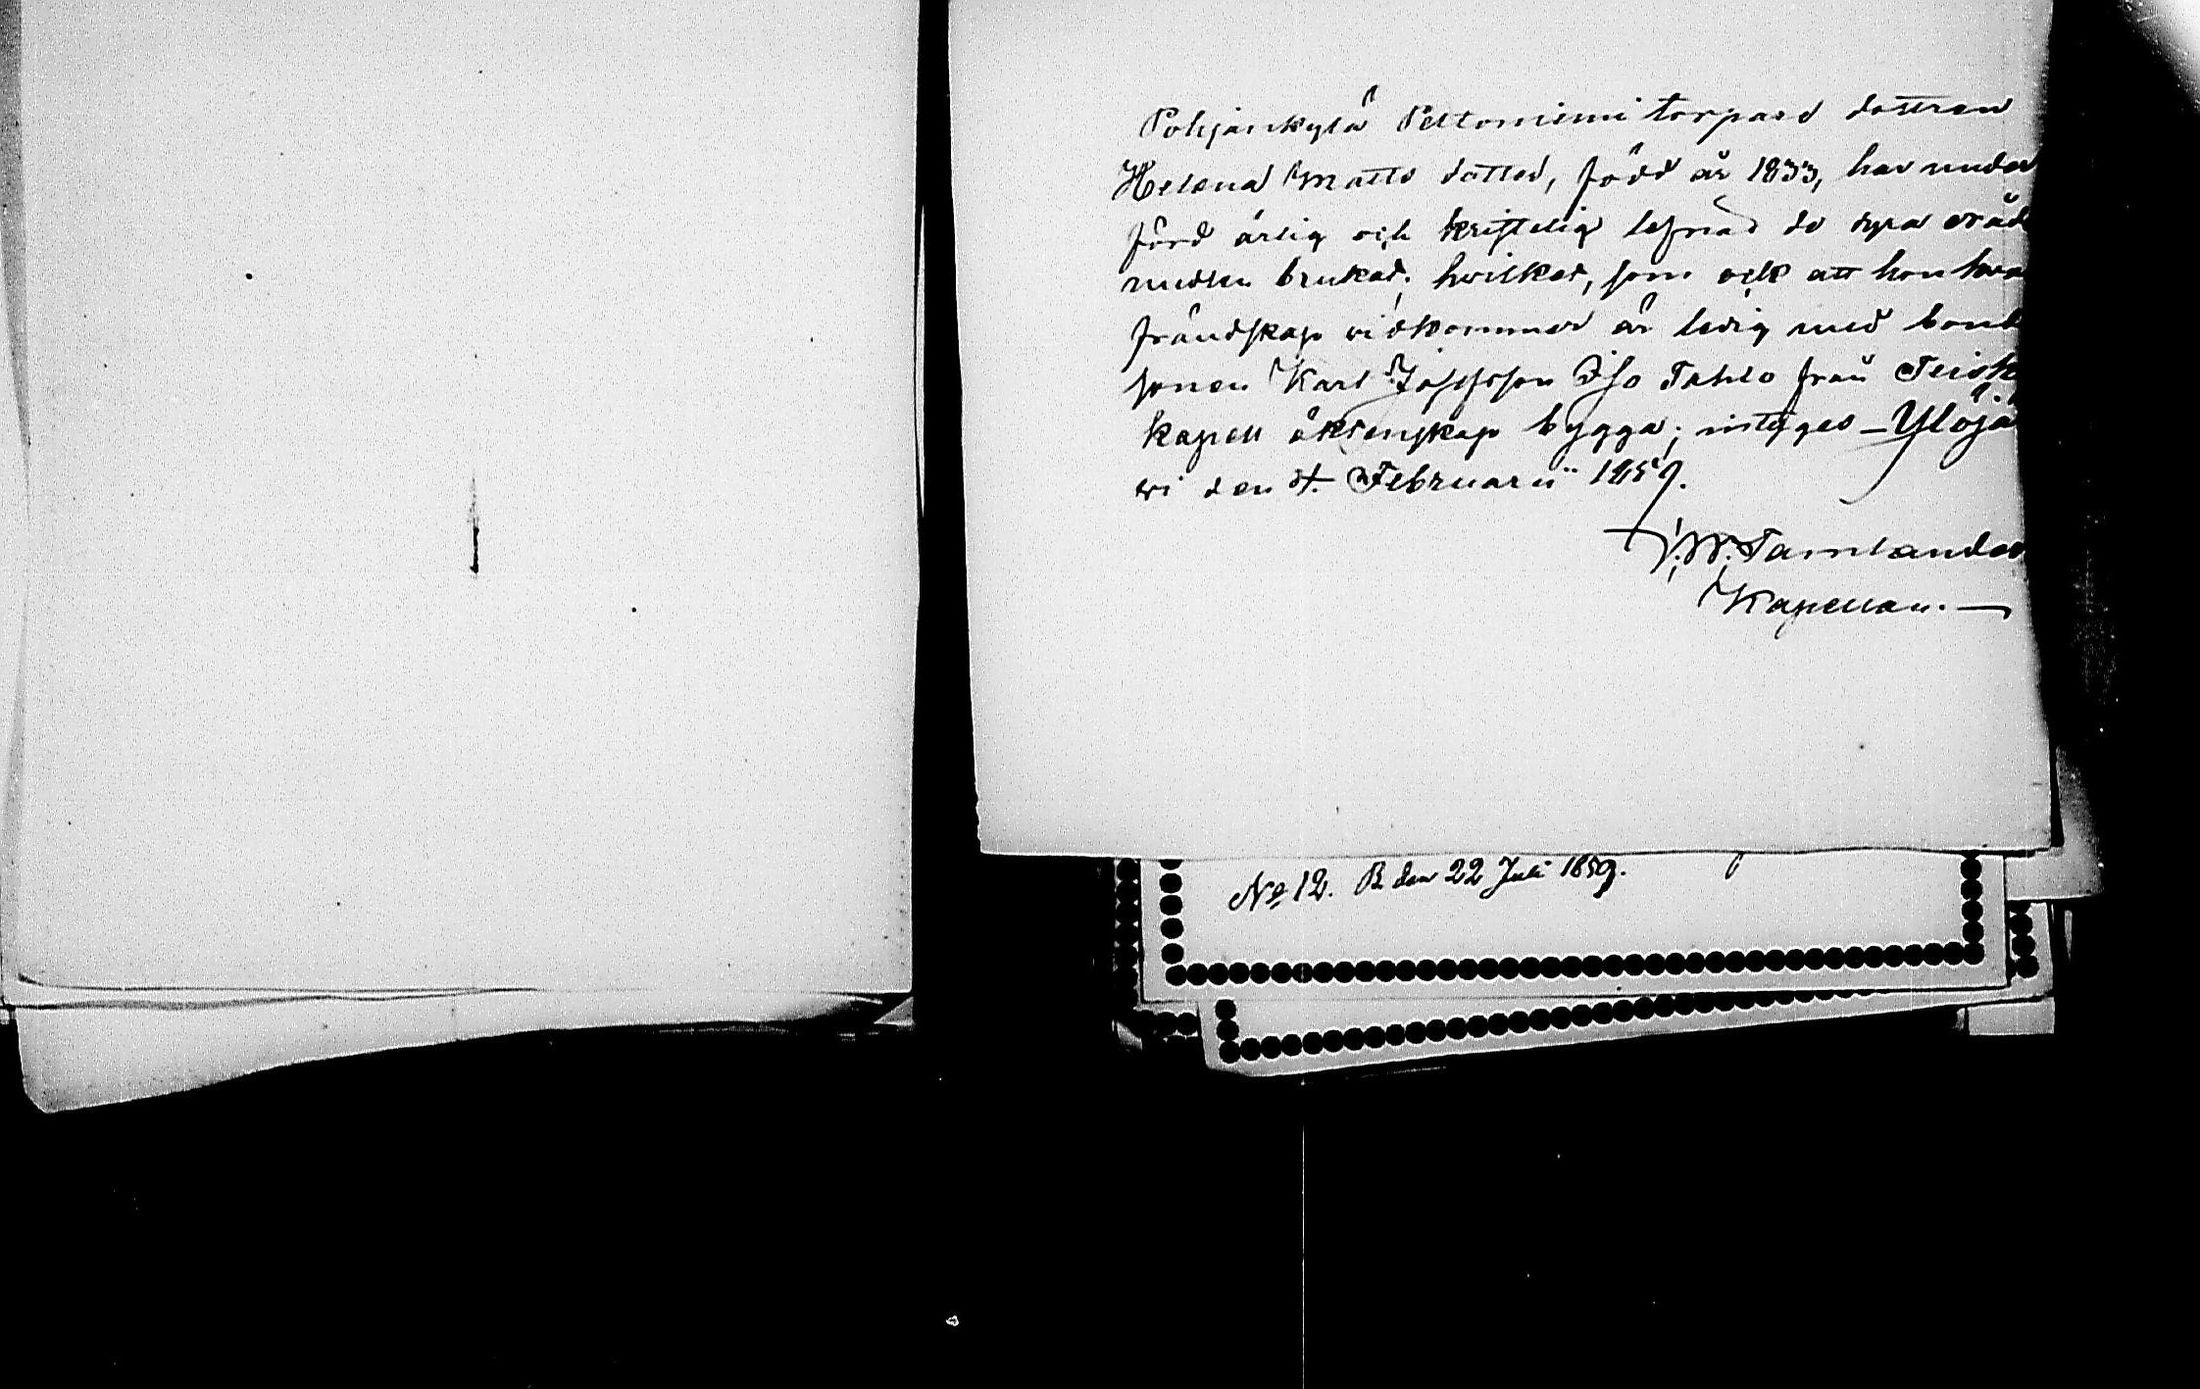 Pohjankylä Peltoniemi torpare dottren
Helena Matts dotter, född år 1833, har under
förd ärlig och kristelig lefnad de dyra nåde
medlen brukat; hvilket, som ock att hon hva
frändskap vidkommer är ledig med bond
sonen Karl Josefsson Iso Tahlo från Teisk
kapell äktenskap bygga; intygas _ Ylöjä
wi den 4. Februarii 1859.
F. W. Tamlander
Kapellan. _
No 12. P. den 22 Juli 1859.